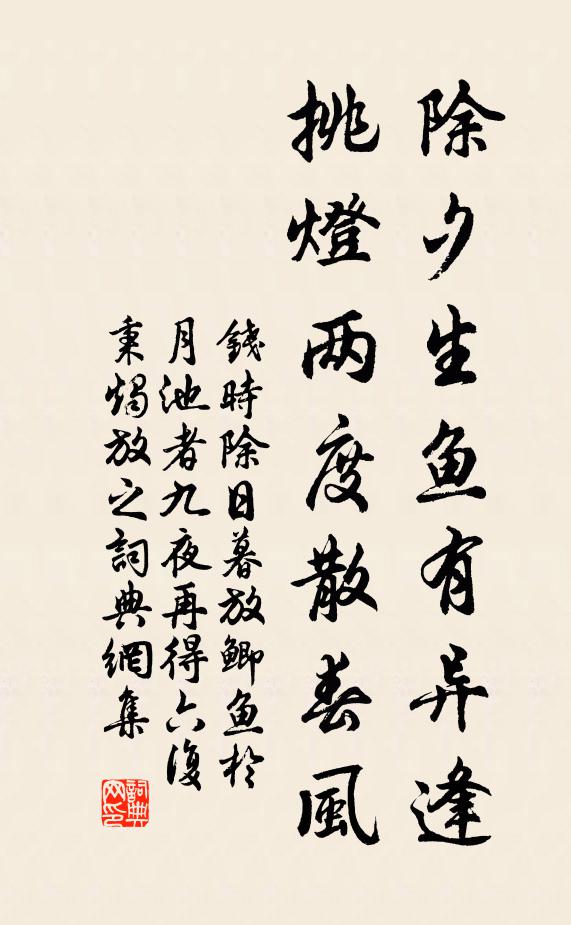 除夕生鱼有异逢
挑燈两度散春風
錢時除日暮放鯽鱼於
月池者九夜再得六復
秉燭放之詞典網集
詞典网印